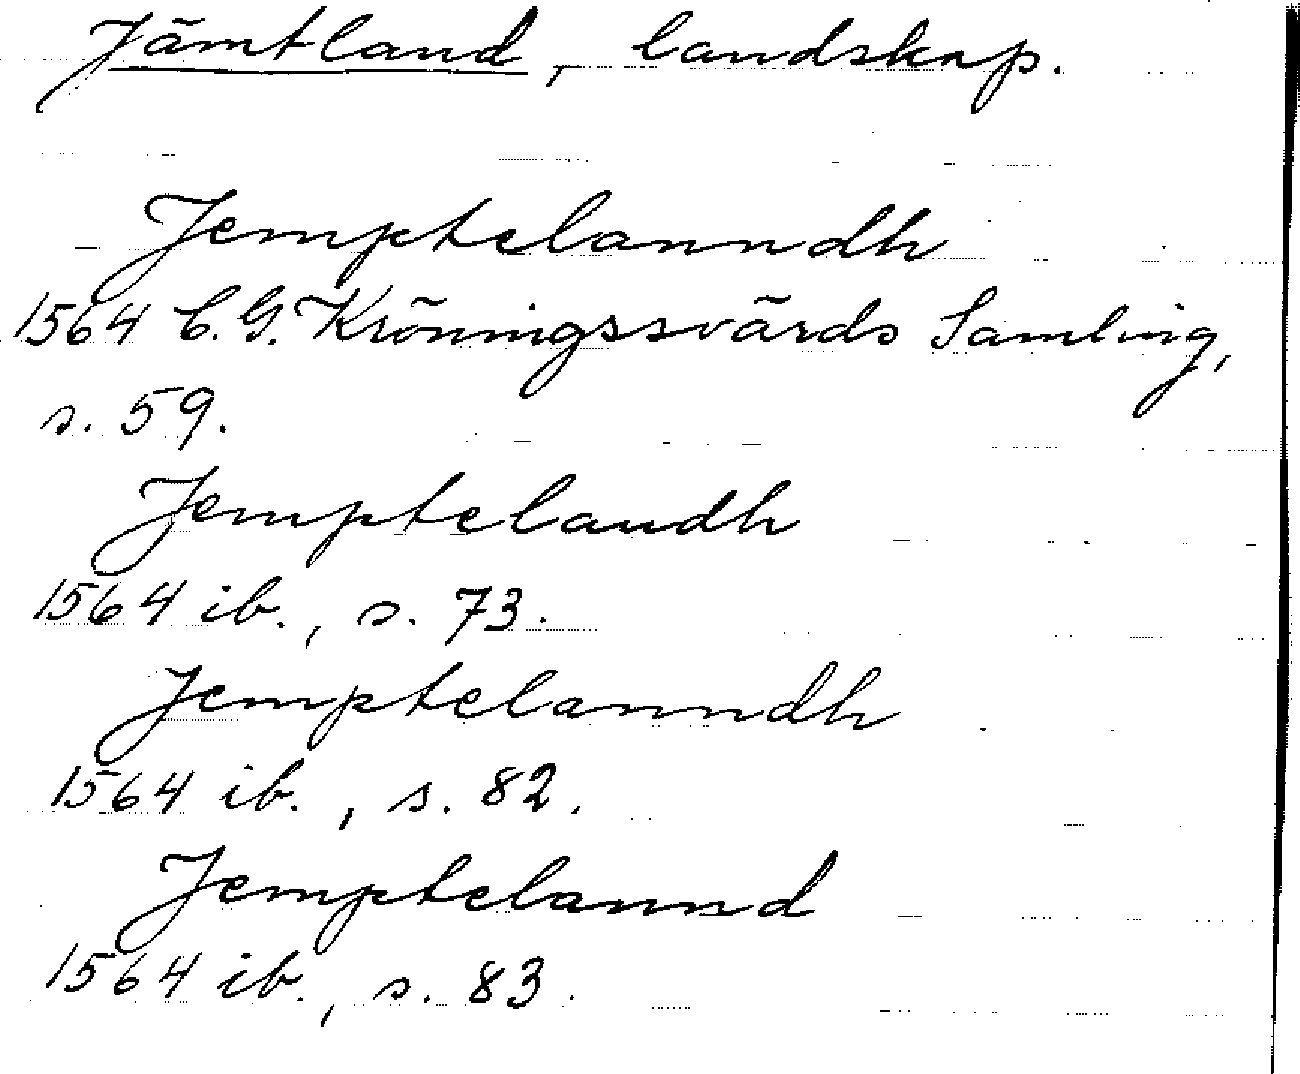 Jämtland, landskap.
Jemptelanndh
1564 C. G. Kröningssvärds Samling,
s. 59.
Jemptelandh
1564 ib., s. 73.
Jemptelanndh
1564 ib., s. 82.
Jemptelannd
1564 ib., s. 83.